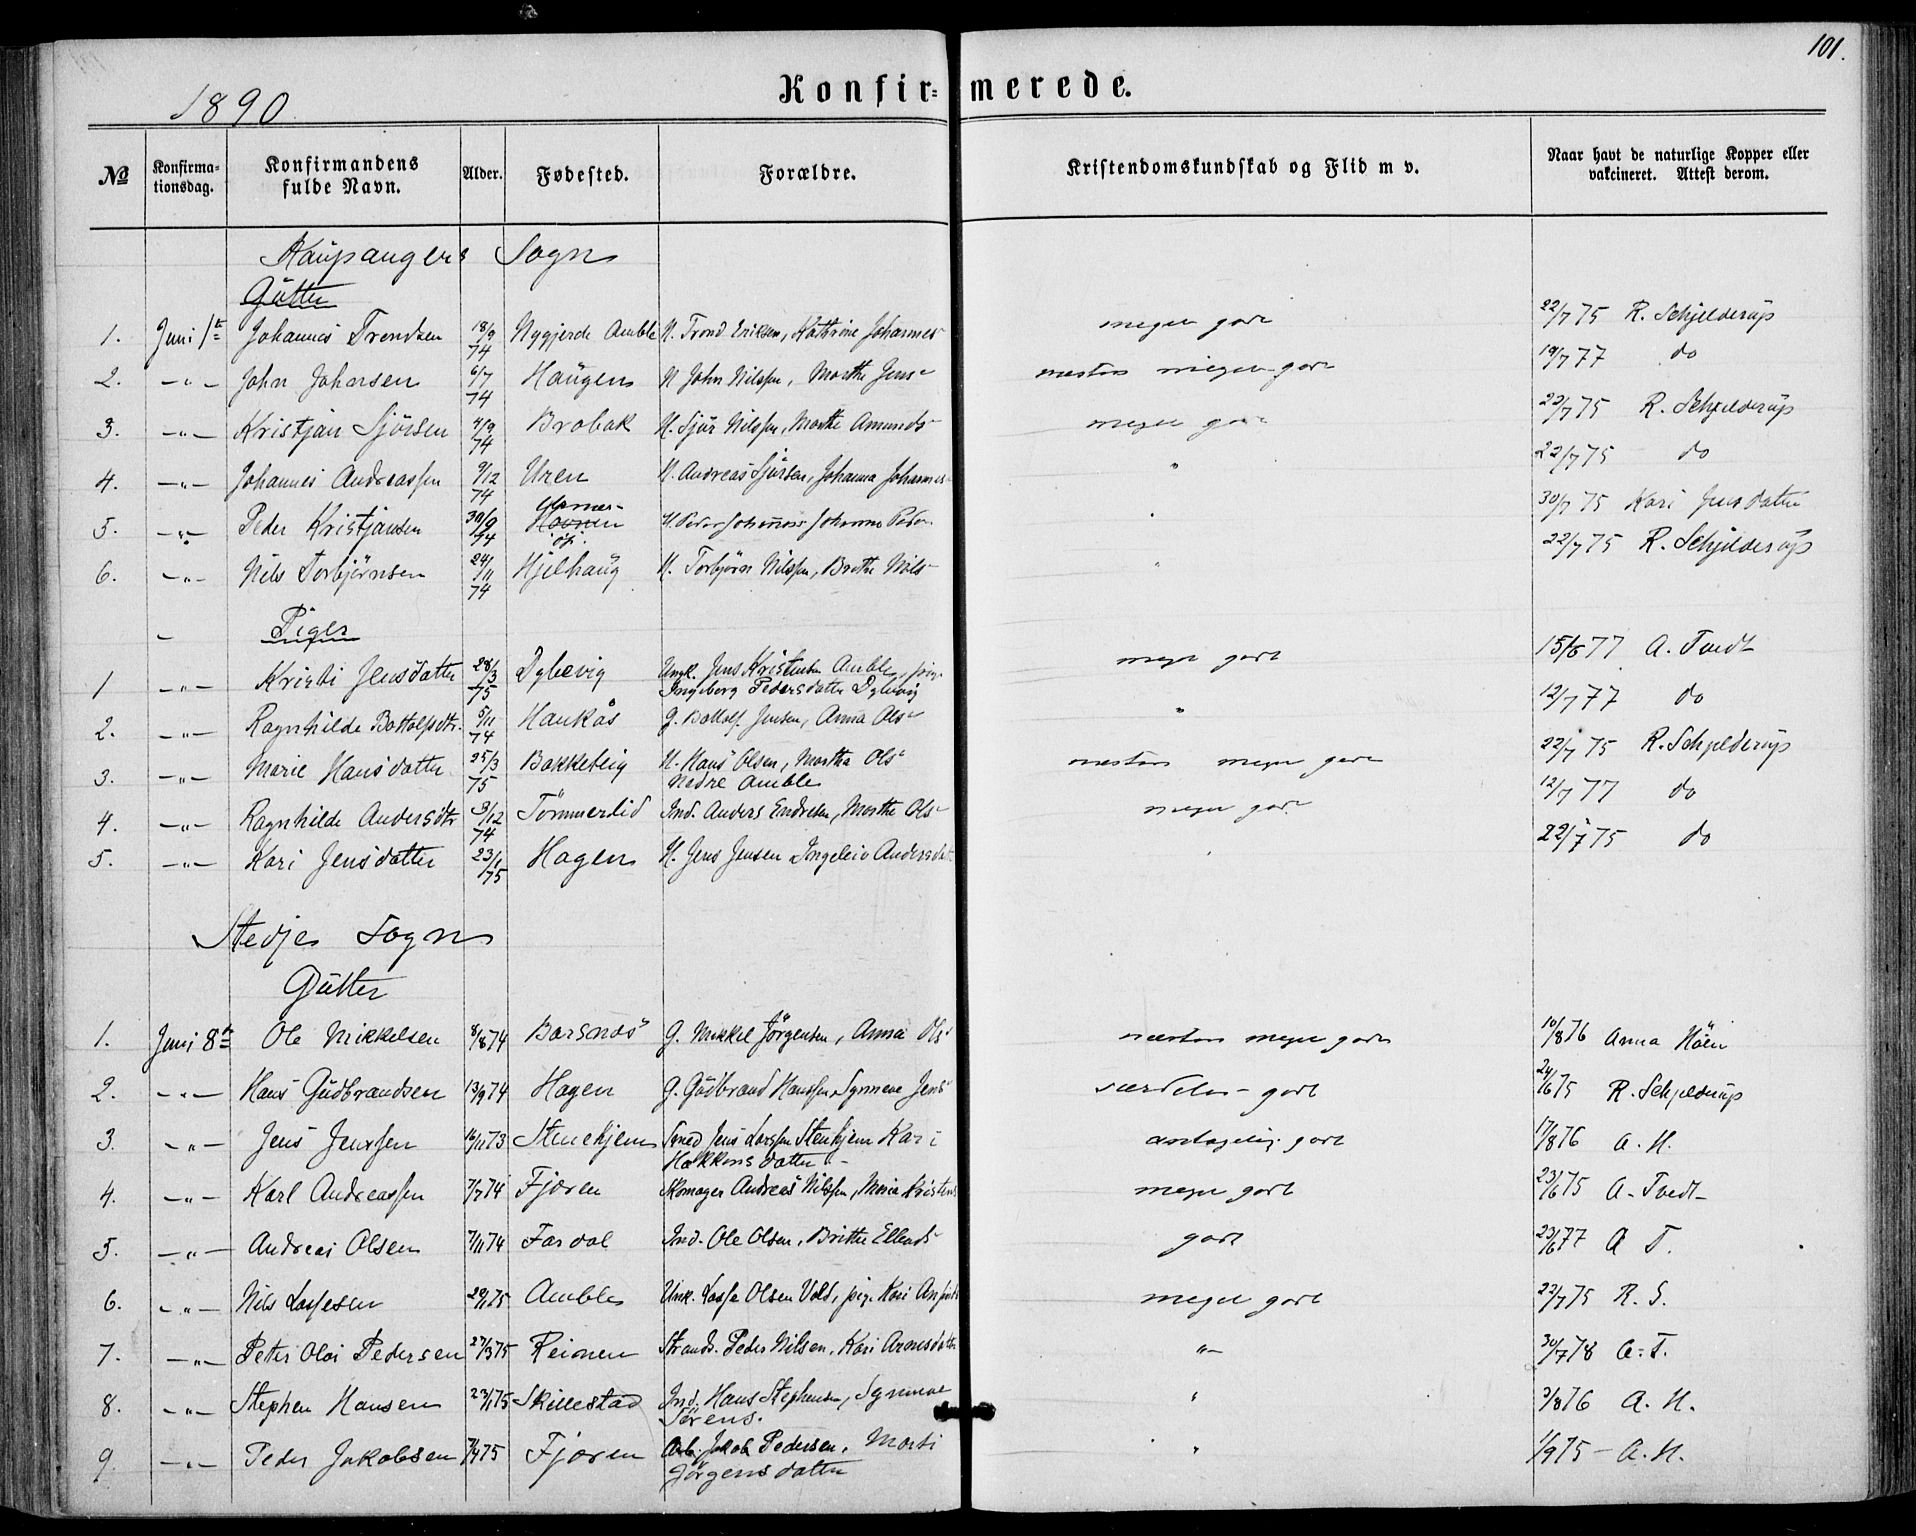 101.
1890
Konfirmerede.
№ Konfirmationsdag. Konfirmandens fulde Navn. Alder. Fødested. Forældre. Kristendomskundskab og Flid m v. Naar havt de naturlige Kopper eller vakcineret. Attest derom.
Kaupangers Sogn
Gutter
1. Juni 1te Johannes Trondsen 18/9 74 Nygjerde Amble H. Trond Eriksen, Kathrine Johannes- meget godt 22/7 75 R. Schjelderup
2. -"- John Johnsen 6/7 74 Haugen H John Nilssen, Marthe Jens- næsten meget godt 19/7 77 do
3. -"- Kristjan Sjursen 4/9 74 Brobak H. Sjur Nilssen, Marthe Amunds- meget godt 22/7 75 R. Schjelderup
4. -"- Johannes Andreassen 9/12 74 Uren H. Andreas Sjursen, Johanna Johannes- " 22/7 75 do
5. -"- Peder Kristjansen 30/9 74 " 30/7 75 Kari Jensdatter
6. -"- Nils Torbjørnsen 24/11 74 Hjelhaug H. Torbjørn Nilssen, Brithe Nils- " 22/7 75 R. Schjelderup
Piger
1 -"- Kristi Jensdatter 28/3 75 Dybevig Ungk. Jens Kristensen Amble, pige Ingeborg Pedersdatter Dybevig meget godt 15/6 77 A. Tvedt
2. -"- Ragnhilde Bottolfsdtr. 5/11 74 Haukås G. Bottolf Jensen, Anna Ols- " 12/7 77 do
3. -"- Marie Hansdatter 25/3 75 Bakketeig H. Hans Olsen, Martha Ols- Nedre Amble næsten meget godt 22/7 75 R. Schjelderup
4. -"- Ragnhilde Andersdtr 3/12 74 Tömmerlid Ind. Anders Endresen, Marthe Ols- meget godt 12/7 77 do
5. -"- Kari Jensdatter 23/1 75 Hagen H. Jens Jensen Ingeleiv Andersdat " 22/7 75 do
Stedje Sogn
Gutter
1. Juni 8de Ole Mikkelsen 8/8 74 Barsnes G. Mikkel Jörgensen, Anna Ols- næsten meget godt 10/8 76 Anna Höen
2. -"- Hans Gudbrandsen 13/9 74 Hagen G. Gudbrand Hanssen, Synneve Jens- særdeles godt 24/6 75 R. Schjelderup
3. -"- Jens Jenssen 16/11 73 Stenehjem Smed Jens Larssen Stenhjem Kari Hakkensdatter antagelig godt 17/8 76 A. H.
4. -"- Karl Andreassen 7/7 74 Fjæren Skomager Andreas Nilssen, Maria Kristens meget godt 23/6 75 A. Tvedt
5. -"- Andreas Olsen 7/11 74 Fardal Ind. Ole Olsen, Brithe Ellends- godt 23/6 77 A T.
6. -"- Nils Lassesen 29/1 75 Amble Unk. Lasse Olsen Vold, pige Kari Anfinds meget godt 22/7 75 R. S.
7. -"- Petter Olai Pedersen 27/3 75 Reinen Strands. Peder Nilsen, Kari Arnesdatter "- 30/7 78 A. T.
8. -"- Stephen Hansen 23/1 75 Skillestad Ind. Hans Stephensen, Synneve Sörens. " 2/8 76 A. H.
9. -"- Peder Jakobsen 7/4 75 Fjæren Arb. Jakob Pedersen, Marti Jörgensdatter " 1/9 75 - A. H.